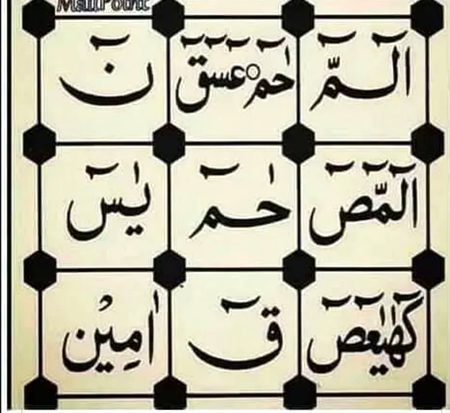 MallPoint
الٓمّٓ حٰمٓ عٓسٓقٓ نٓ
الٓمّٓصٓ حٰمٓ يٰسٓ
كٓهٰيٰعٓصٓ قٓ اٰمِيْن